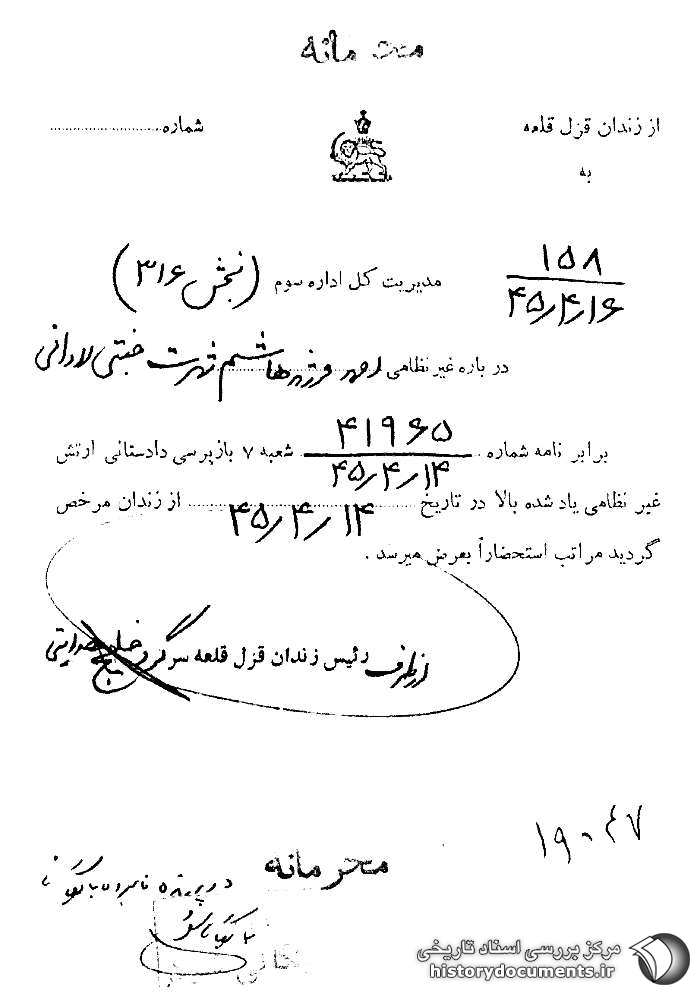 محرمانه
از زندان قزل قلعه
شماره
به
۱۵۸
۴۵/۴/۱۶
مدیریت کل اداره سوم (بخش ۳۱۶)
در باره غیر نظامی احمد فرزند هاشم شهرت لادانی
برابر نامه شماره ۴۱۹۶۵ شعبه ۷ بازپرسی دادستانی ارتش
۴۵/۴/۱۴
غیر نظامی یاد شده بالا در تاریخ ۴۵/۴/۱۴ از زندان مرخص
گردید مراتب استحضاراً بعرض میرسد .
از طرف رئیس زندان قزل قلعه سرگرد
محرمانه
در پرونده بایگانی
مرکز بررسی اسناد تاریخی
historydocuments.ir